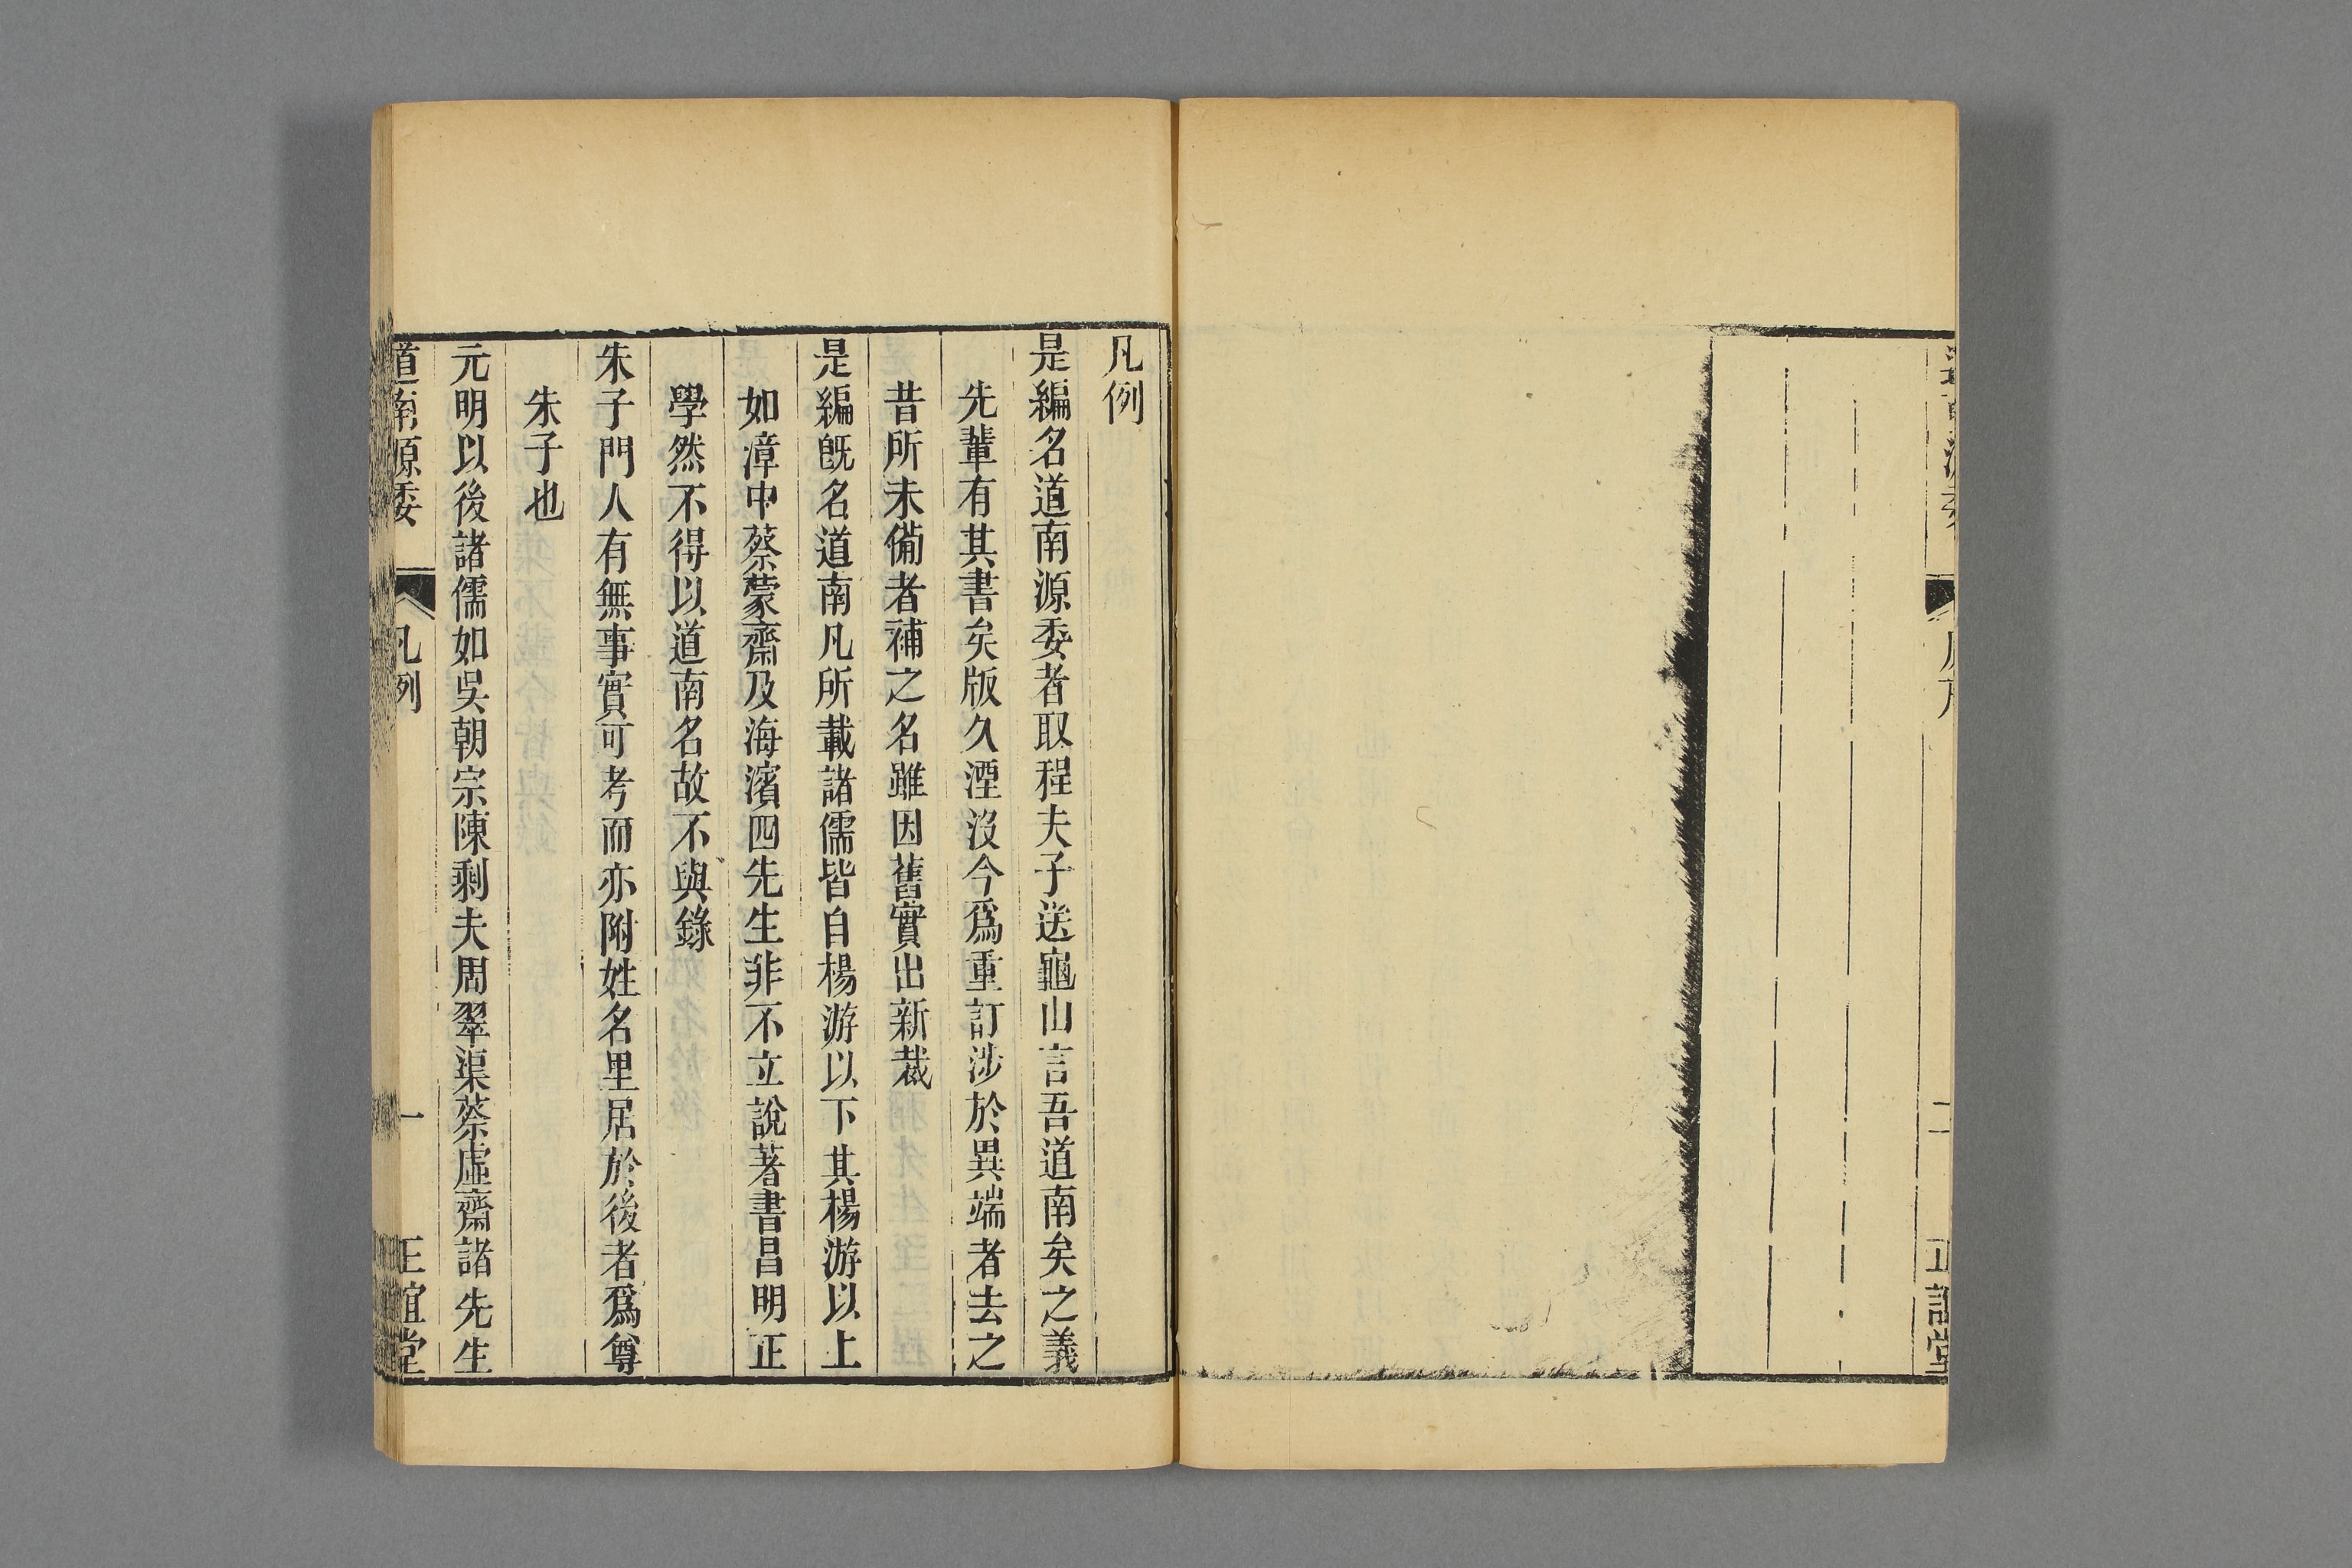 二
正誼堂
凡例
是編名道南源委者取程夫子送龜山言吾道南矣之義
先輩有其書矣版久湮沒今爲重訂涉於異端者去之
昔所未備者補之名雖因舊實出新裁
是編旣名道南凡所載諸儒皆自楊游以下其楊游以上
如漳中蔡蒙齋及海濱四先生非不立說著書昌明正
學然不得以道南名故不與錄
朱子門人有無事實可考而亦附姓名里居於後者爲尊
朱子也
元明以後諸儒如吳朝宗陳剩夫周翠渠蔡虛齋諸先生
道南源委
凡例
一
正誼堂